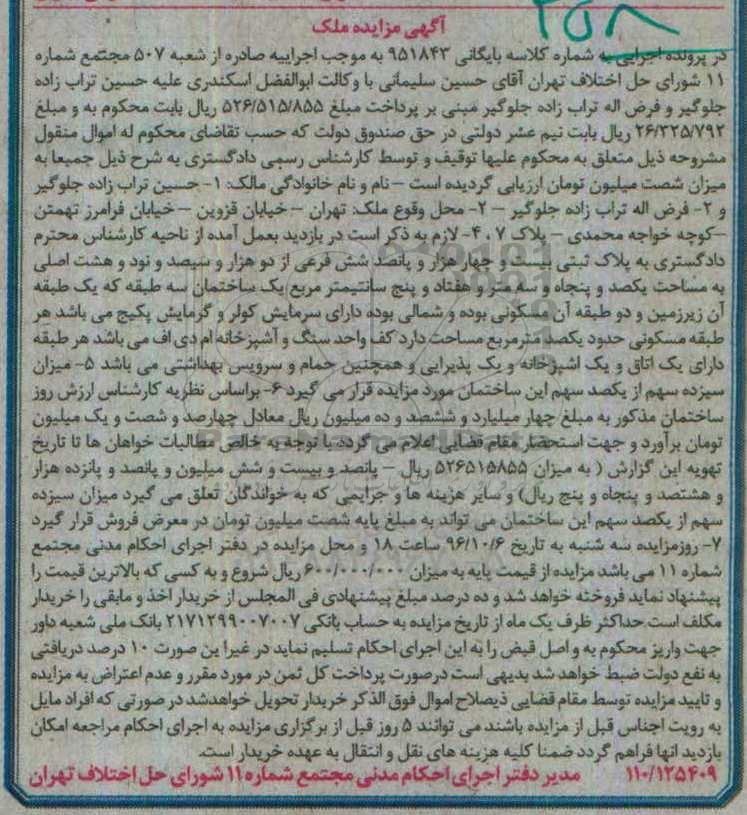 ۳۵۸
آگهی مزایده ملک
در پرونده اجرایی به شماره کلاسه بایگانی ۹۵۱۸۴۳ به موجب اجراییه صادره از شعبه ۵۰۷ مجتمع شماره
۱۱ شورای حل اختلاف تهران آقای حسین سلیمانی با وکالت ابوالفضل اسکندری علیه حسین تراب زاده
جلوگیر و فرض اله تراب زاده جلوگیر مبنی بر پرداخت مبلغ ۵۲۶/۵۱۵/۸۵۵ ریال بابت محکوم به و مبلغ
۲۶/۳۲۵/۷۹۲ ریال بابت نیم عشر دولتی در حق صندوق دولت که حسب تقاضای محکوم له اموال منقول
مشروحه ذیل متعلق به محکوم علیها توقیف و توسط کارشناس رسمی دادگستری به شرح ذیل جمیعا به
میزان شصت میلیون تومان ارزیابی گردیده است – نام و نام خانوادگی مالک: ۱- حسین تراب زاده جلوگیر
و ۲- فرض اله تراب زاده جلوگیر – ۲- محل وقوع ملک: تهران – خیابان قزوین – خیابان فرامرز تهمتن
–کوچه خواجه محمدی – پلاک ۷ ، ۴- لازم به ذکر است در بازدید بعمل آمده از ناحیه کارشناس محترم
دادگستری به پلاک ثبتی بیست و چهار هزار و پانصد شش فرعی از دو هزار و سیصد و نود و هشت اصلی
به مساحت یکصد و پنجاه و سه متر و هفتاد و پنج سانتیمتر مربع یک ساختمان سه طبقه که یک طبقه
آن زیرزمین و دو طبقه آن مسکونی بوده و شمالی بوده دارای سرمایش کولر و گرمایش پکیج می باشد هر
طبقه مسکونی حدود یکصد مترمربع مساحت دارد کف واحد سنگ و آشپزخانه ام دی اف می باشد هر طبقه
دارای یک اتاق و یک اشپزخانه و یک پذیرایی و همچنین حمام و سرویس بهداشتی می باشد ۵- میزان
سیزده سهم از یکصد سهم این ساختمان مورد مزایده قرار می گیرد ۶- براساس نظریه کارشناس ارزش روز
ساختمان مذکور به مبلغ چهار میلیارد و ششصد و ده میلیون ریال معادل چهارصد و شصت و یک میلیون
تومان برآورد و جهت استحضار مقام قضایی اعلام می گردد با توجه به خالص مطالبات خواهان ها تا تاریخ
تهویه این گزارش ( به میزان ۵۲۶۵۱۵۸۵۵ ریال – پانصد و بیست و شش میلیون و پانصد و پانزده هزار
و هشتصد و پنجاه و پنج ریال) و سایر هزینه ها و جرایمی که به خواندگان تعلق می گیرد میزان سیزده
سهم از یکصد سهم این ساختمان می تواند به مبلغ پایه شصت میلیون تومان در معرض فروش قرار گیرد
۷- روزمزایده سه شنبه به تاریخ ۹۶/۱۰/۶ ساعت ۱۸ و محل مزایده در دفتر اجرای احکام مدنی مجتمع
شماره ۱۱ می باشد مزایده از قیمت پایه به میزان ۶۰۰/۰۰۰/۰۰۰ ریال شروع و به کسی که بالاترین قیمت را
پیشنهاد نماید فروخته خواهد شد و ده درصد مبلغ پیشنهادی فی المجلس از خریدار اخذ و مابقی را خریدار
مکلف است حداکثر ظرف یک ماه از تاریخ مزایده به حساب بانکی ۲۱۷۱۲۹۹۰۰۷۰۰۷ بانک ملی شعبه داور
جهت واریز محکوم به و اصل قبض را به این اجرای احکام تسلیم نماید در غیرا ین صورت ۱۰ درصد دریافتی
به نفع دولت ضبط خواهد شد بدیهی است درصورت پرداخت کل ثمن در مورد مقرر و عدم اعتراض به مزایده
و تایید مزایده توسط مقام قضایی ذیصلاح اموال فوق الذکر خریدار تحویل خواهدشد در صورتی که افراد مایل
به رویت اجناس قبل از مزایده باشند می توانند ۵ روز قبل از برگزاری مزایده به اجرای احکام مراجعه امکان
بازدید انها فراهم گردد ضمنا کلیه هزینه های نقل و انتقال به عهده خریدار است.
۱۱۰/۱۲۵۴۰۹ مدیر دفتر اجرای احکام مدنی مجتمع شماره ۱۱ شورای حل اختلاف تهران